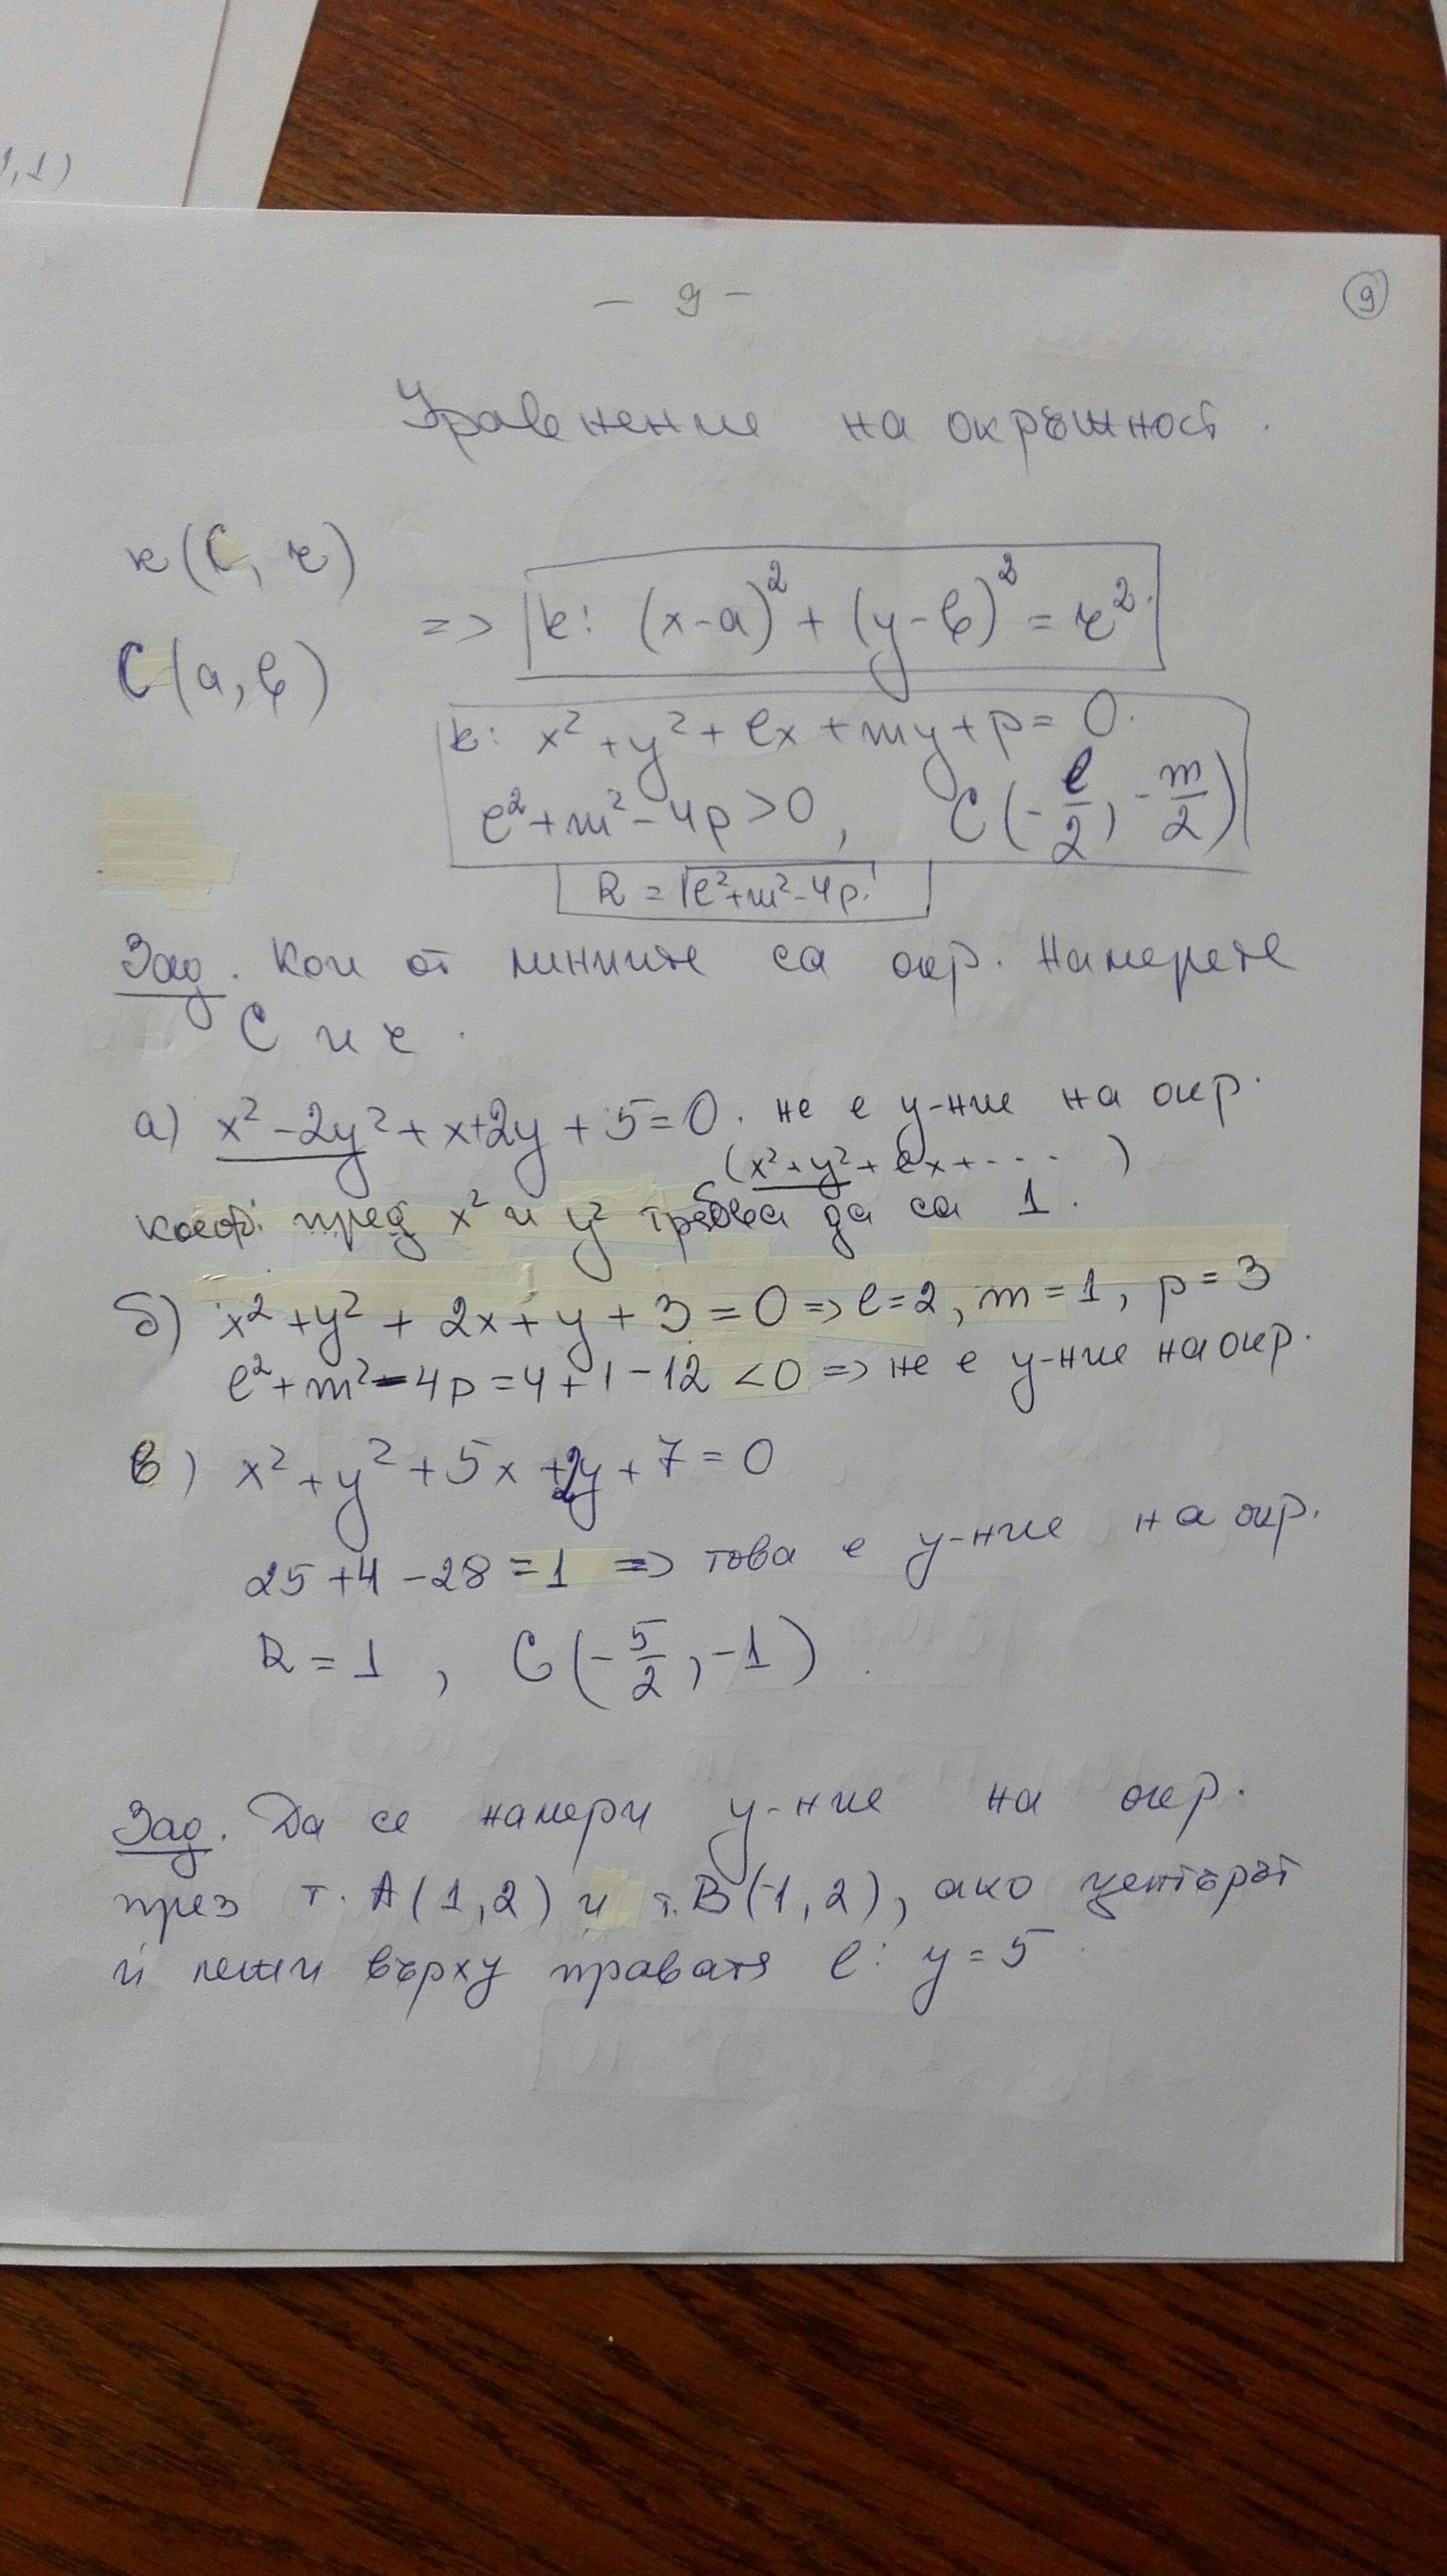 1,1)
- 9 -
9
Уравнение на окръжност.
k(C, r)
=> k: (x-a)² + (y-b)² = r².
C(a, b)
k: x² + y² + lx + my + p = 0.
l² + m² - 4p > 0, C(-l/2, -m/2)
R = √l²+m²-4p
Зад. Кои от линиите са окр. Намерете
C и r.
а) x² - 2y² + x + 2y + 5 = 0. не е у-ние на окр.
(x² + y² + lx + ... )
коеф. пред x² и y² трябва да са 1.
б) x² + y² + 2x + y + 3 = 0 => l = 2, m = 1, p = 3
l² + m² - 4p = 4 + 1 - 12 < 0 => не е у-ние на окр.
в) x² + y² + 5x + 2y + 7 = 0
25 + 4 - 28 = 1 => това е у-ние на окр.
R = 1, C(-5/2, -1).
Зад. Да се намери у-ние на окр.
през т. A(1,2) и т. B(-1,2), ако центърът
ѝ лежи върху правата l: y = 5.